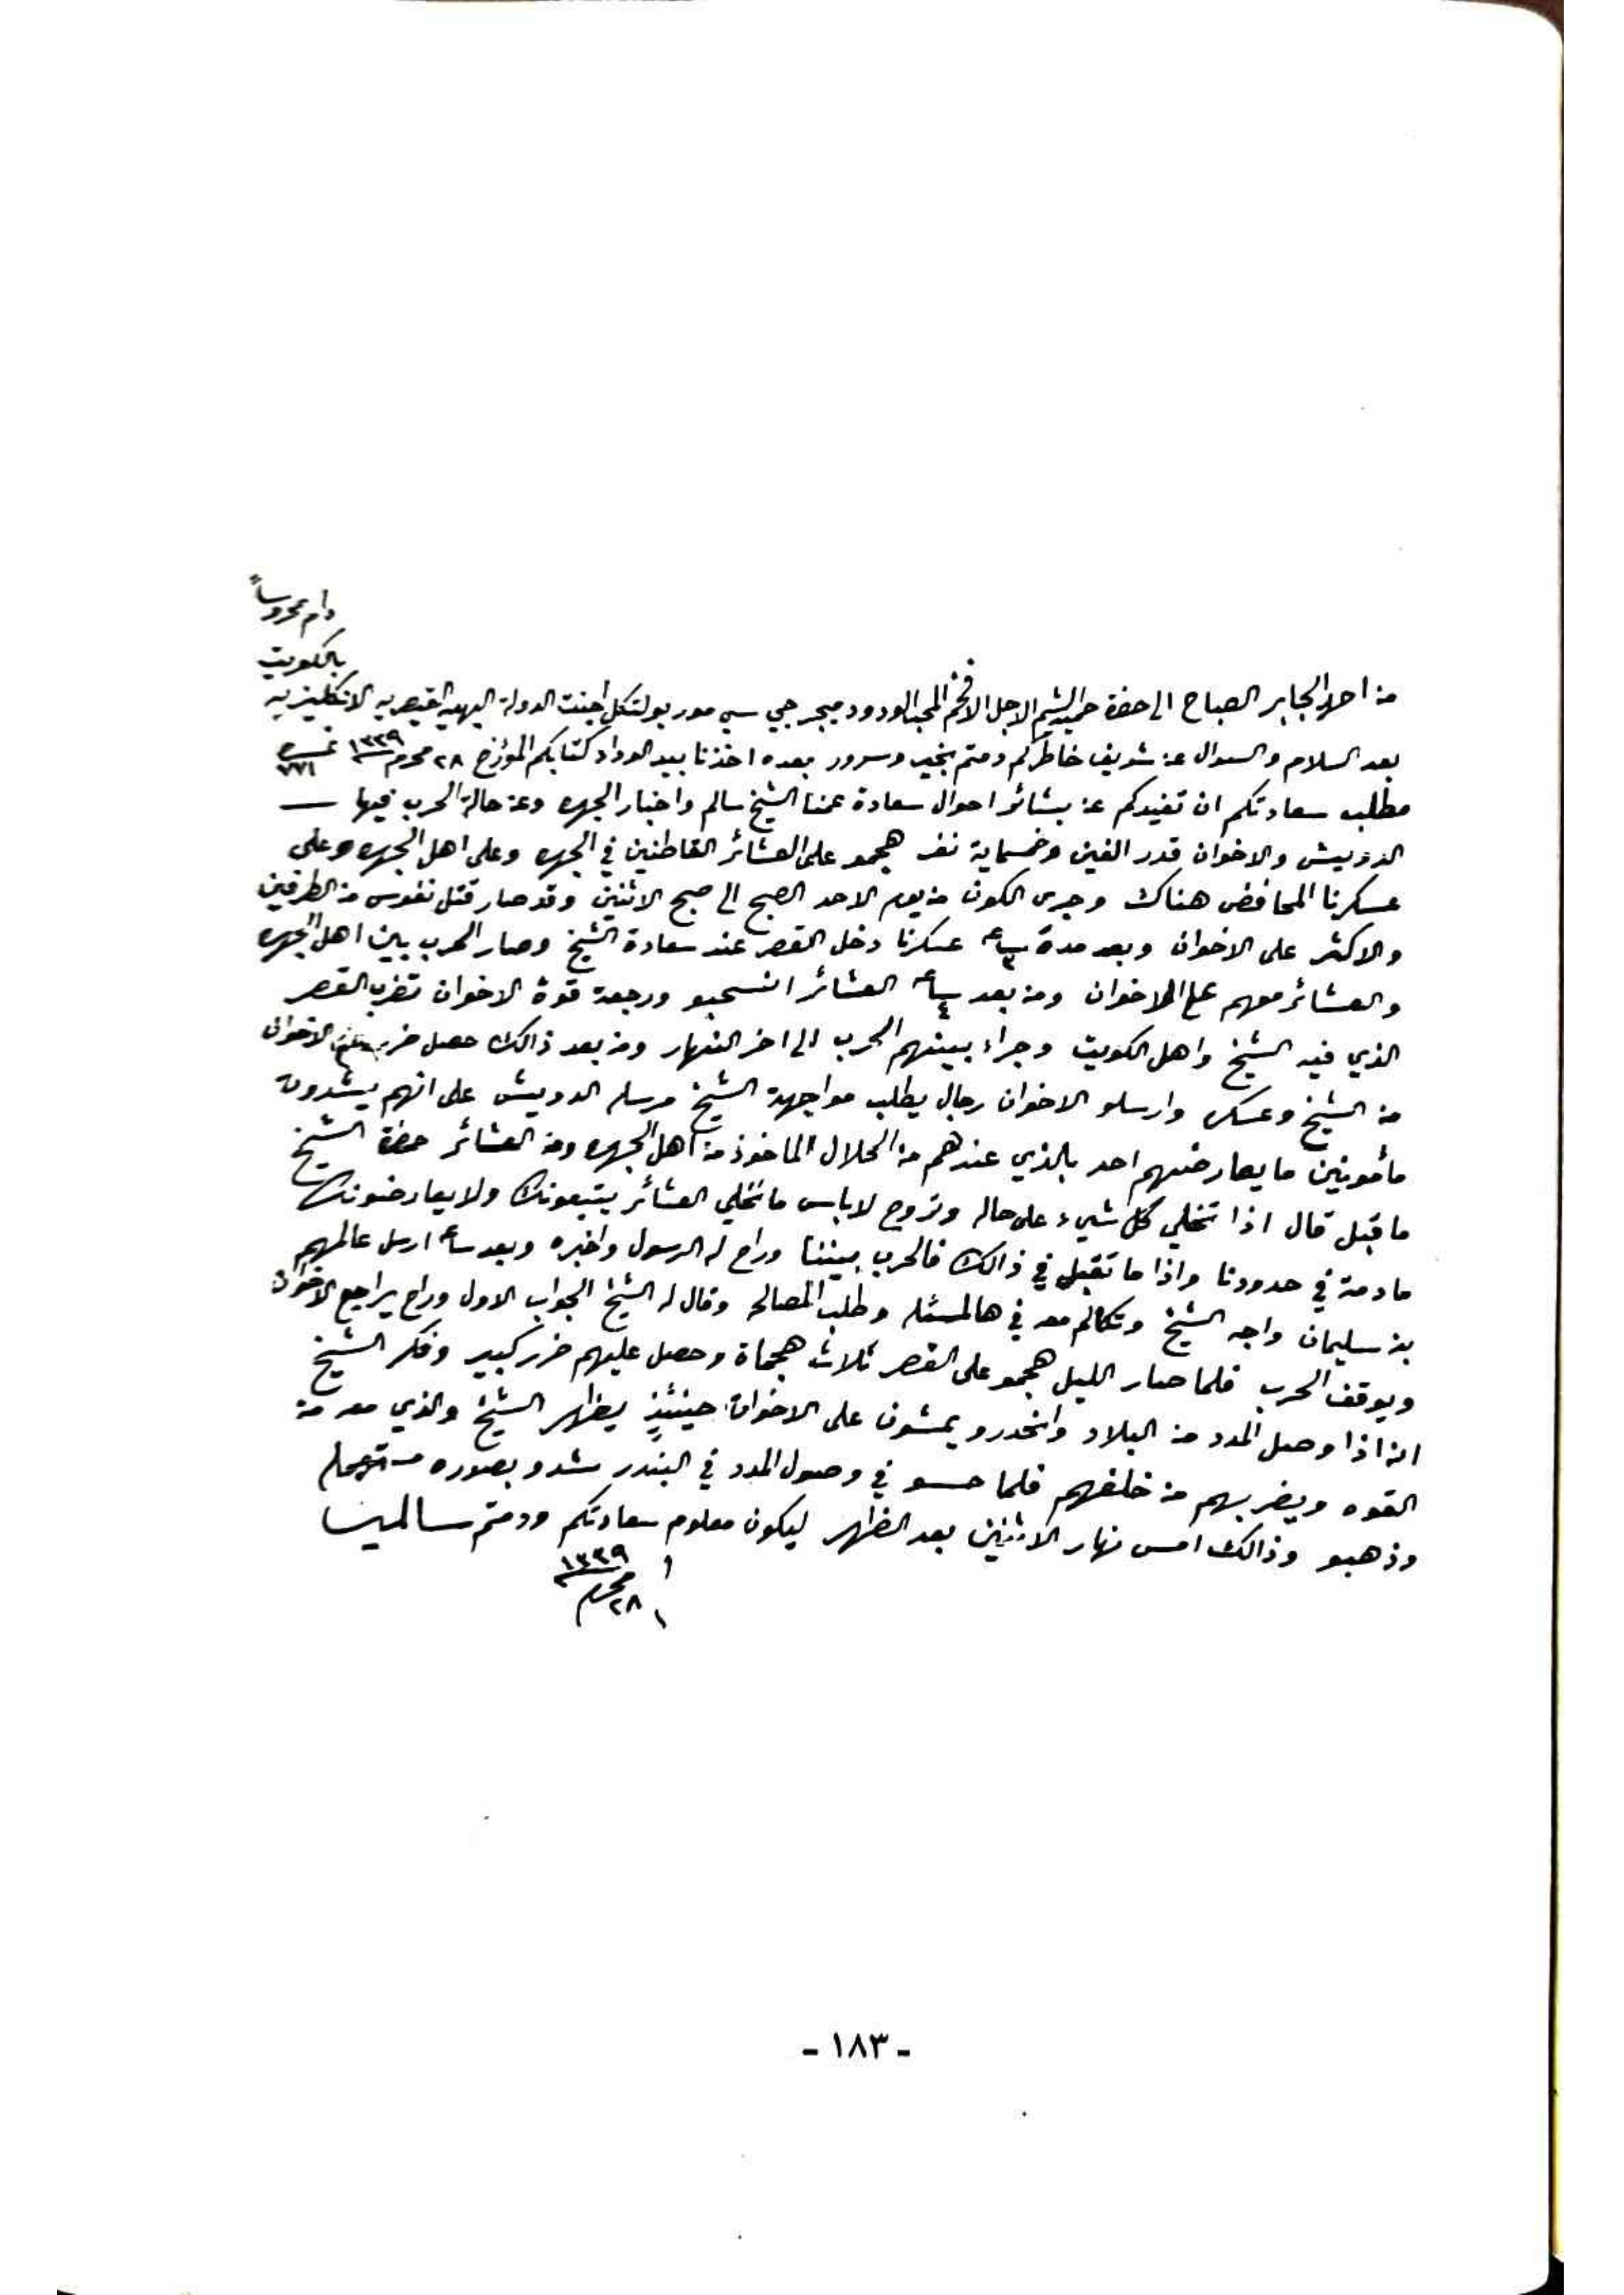 دام محروساً
بالكويت
من احمد الجابر الصباح الى حضرة حميد الشيم الاجل الافخم المحب الودود ميجر جي سي مور بولتكل اجنت الدولة البهيه القيصريه الانكليزيه
بعد السلام والسوال عن شريف خاطركم دمتم بخير وسرور بعده اخذنا بيد الوداد كتابكم المؤرخ ٢٨ محرم ١٣٣٩ نمره ٧٧١
مطلب سعادتكم ان نفيدكم عن بشائر احوال سعادة عمنا الشيخ سالم واخبار الجهره وعن حالة الحرب فيها
الدويش والاخوان قدر الفين وخمسماية نفر هجمو على العشائر القاطنين في الجهره وعلى اهل الجهره وعلى
عسكرنا المحافض هناك وجرى الكون من يوم الاحد الصبح الى صبح الاثنين وقد صار قتل نفوس من الطرفين
والاكثر على الاخوان وبعد مدة ٣ ساعه عسكرنا دخل القصر عند سعادة الشيخ وصار الحرب بين اهل الجهره
والعشائر معهم على الاخوان ومن بعد ٤ ساعه العشائر انسحبو ورجعة قوة الاخوان تضرب القصر
الذي فيه الشيخ واهل الكويت وجراء بينهم الحرب الى اخر النهار ومن بعد ذالك حصل ضرب على الاخوان
من الشيخ وعسكره وارسلو الاخوان رجال يطلب مواجهة الشيخ مرسله الدويش على انهم يشدون
مأمونين ما يعارضهم احد بالذي عندهم من الحلال الماخوذ من اهل الجهره ومن العشائر حضرة الشيخ
ما قبل قال اذا تخلي كل شيء على حاله وتروح لاباس ما نخلي العشائر يتبعونك ولا يعارضونك
مادمة في حدودنا واذا ما تقبل في ذالك فالحرب بيننا وراح له الرسول واخبره وبعد ساعه ارسل عالمهم
بن سليمان واجه الشيخ وتكالم معه في هالمسئله وطلب المصالحه وقال له الشيخ الجواب الاول وراح يراجع الاخوان
ويوقف الحرب فلما صار الليل هجمو على القصر ثلاث هجماة وحصل عليهم ضرر كبير وفكر الشيخ
انه اذا وصل المدد من البلاد وانحدرو يمشون على الاخوان حينئذٍ يظهر الشيخ والذي معه من
القوه ويضربهم من خلفهم فلما حسو في وصول المدد في البندر شدو بصوره مستعجله
وذهبو وذالك امس نهار الاثنين بعد الظهر ليكون معلوم سعادتكم ودمتم سالمين
٢٨ محرم ١٣٣٩
- ١٨٣ -